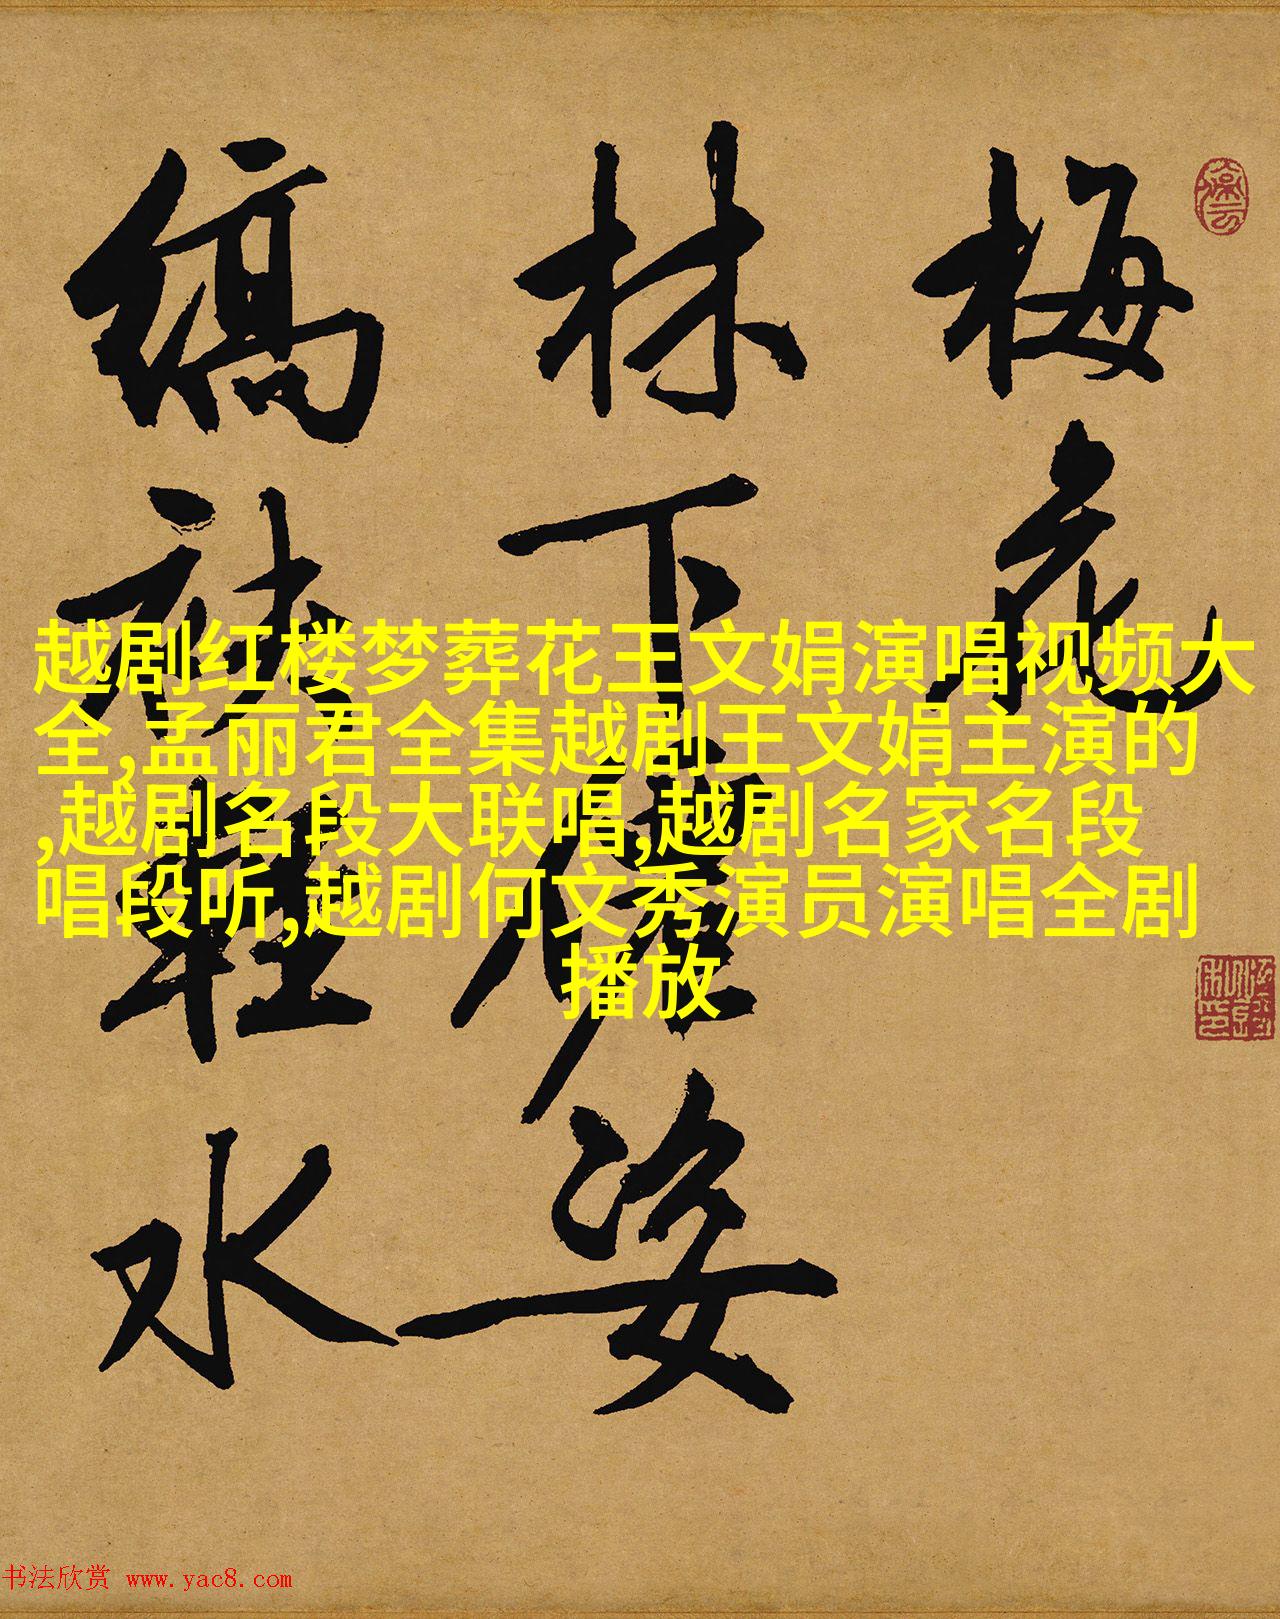 梅花
林下姿
縞袂輕水
越剧红楼梦葬花王文娟演唱视频大
全,孟丽君全集越剧王文娟主演的
,越剧名段大联唱,越剧名家名段
唱段听,越剧何文秀演员演唱全剧
播放
书法欣赏 www.yac8.com